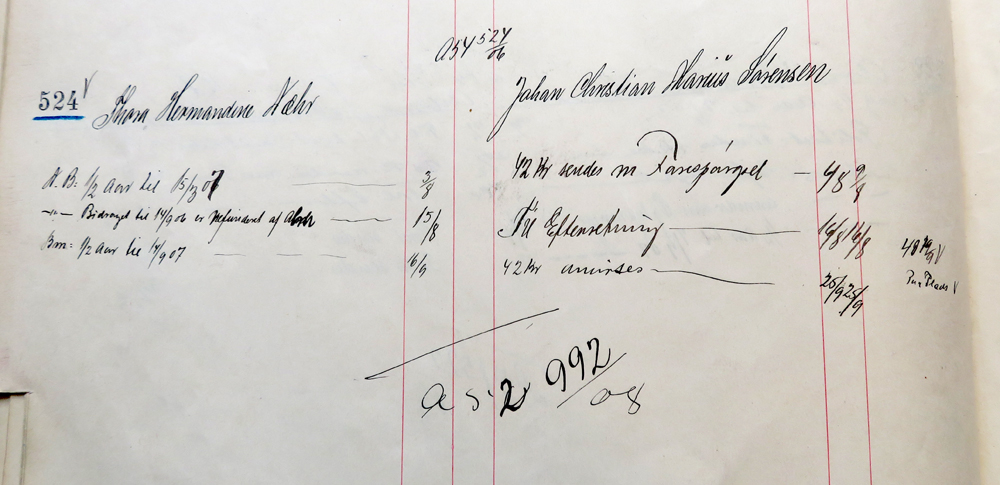 a 54 524/06
524 V Thora Hermandine Næhr
Johan Christian Marius Sørensen
N.B: 1/2 Aar til 15/3 07 3/8
42 Kr sendes m 4/8 9/8
-"- Bidraget til 14/9 06 er refunderet af 15/8
Til Efterretning 14/8 16/8
Bm: 1/2 Aar til 14/9 07 16/9
42 Kr anvises 25/9 25/9
48 V
V
a 5 2 992/08